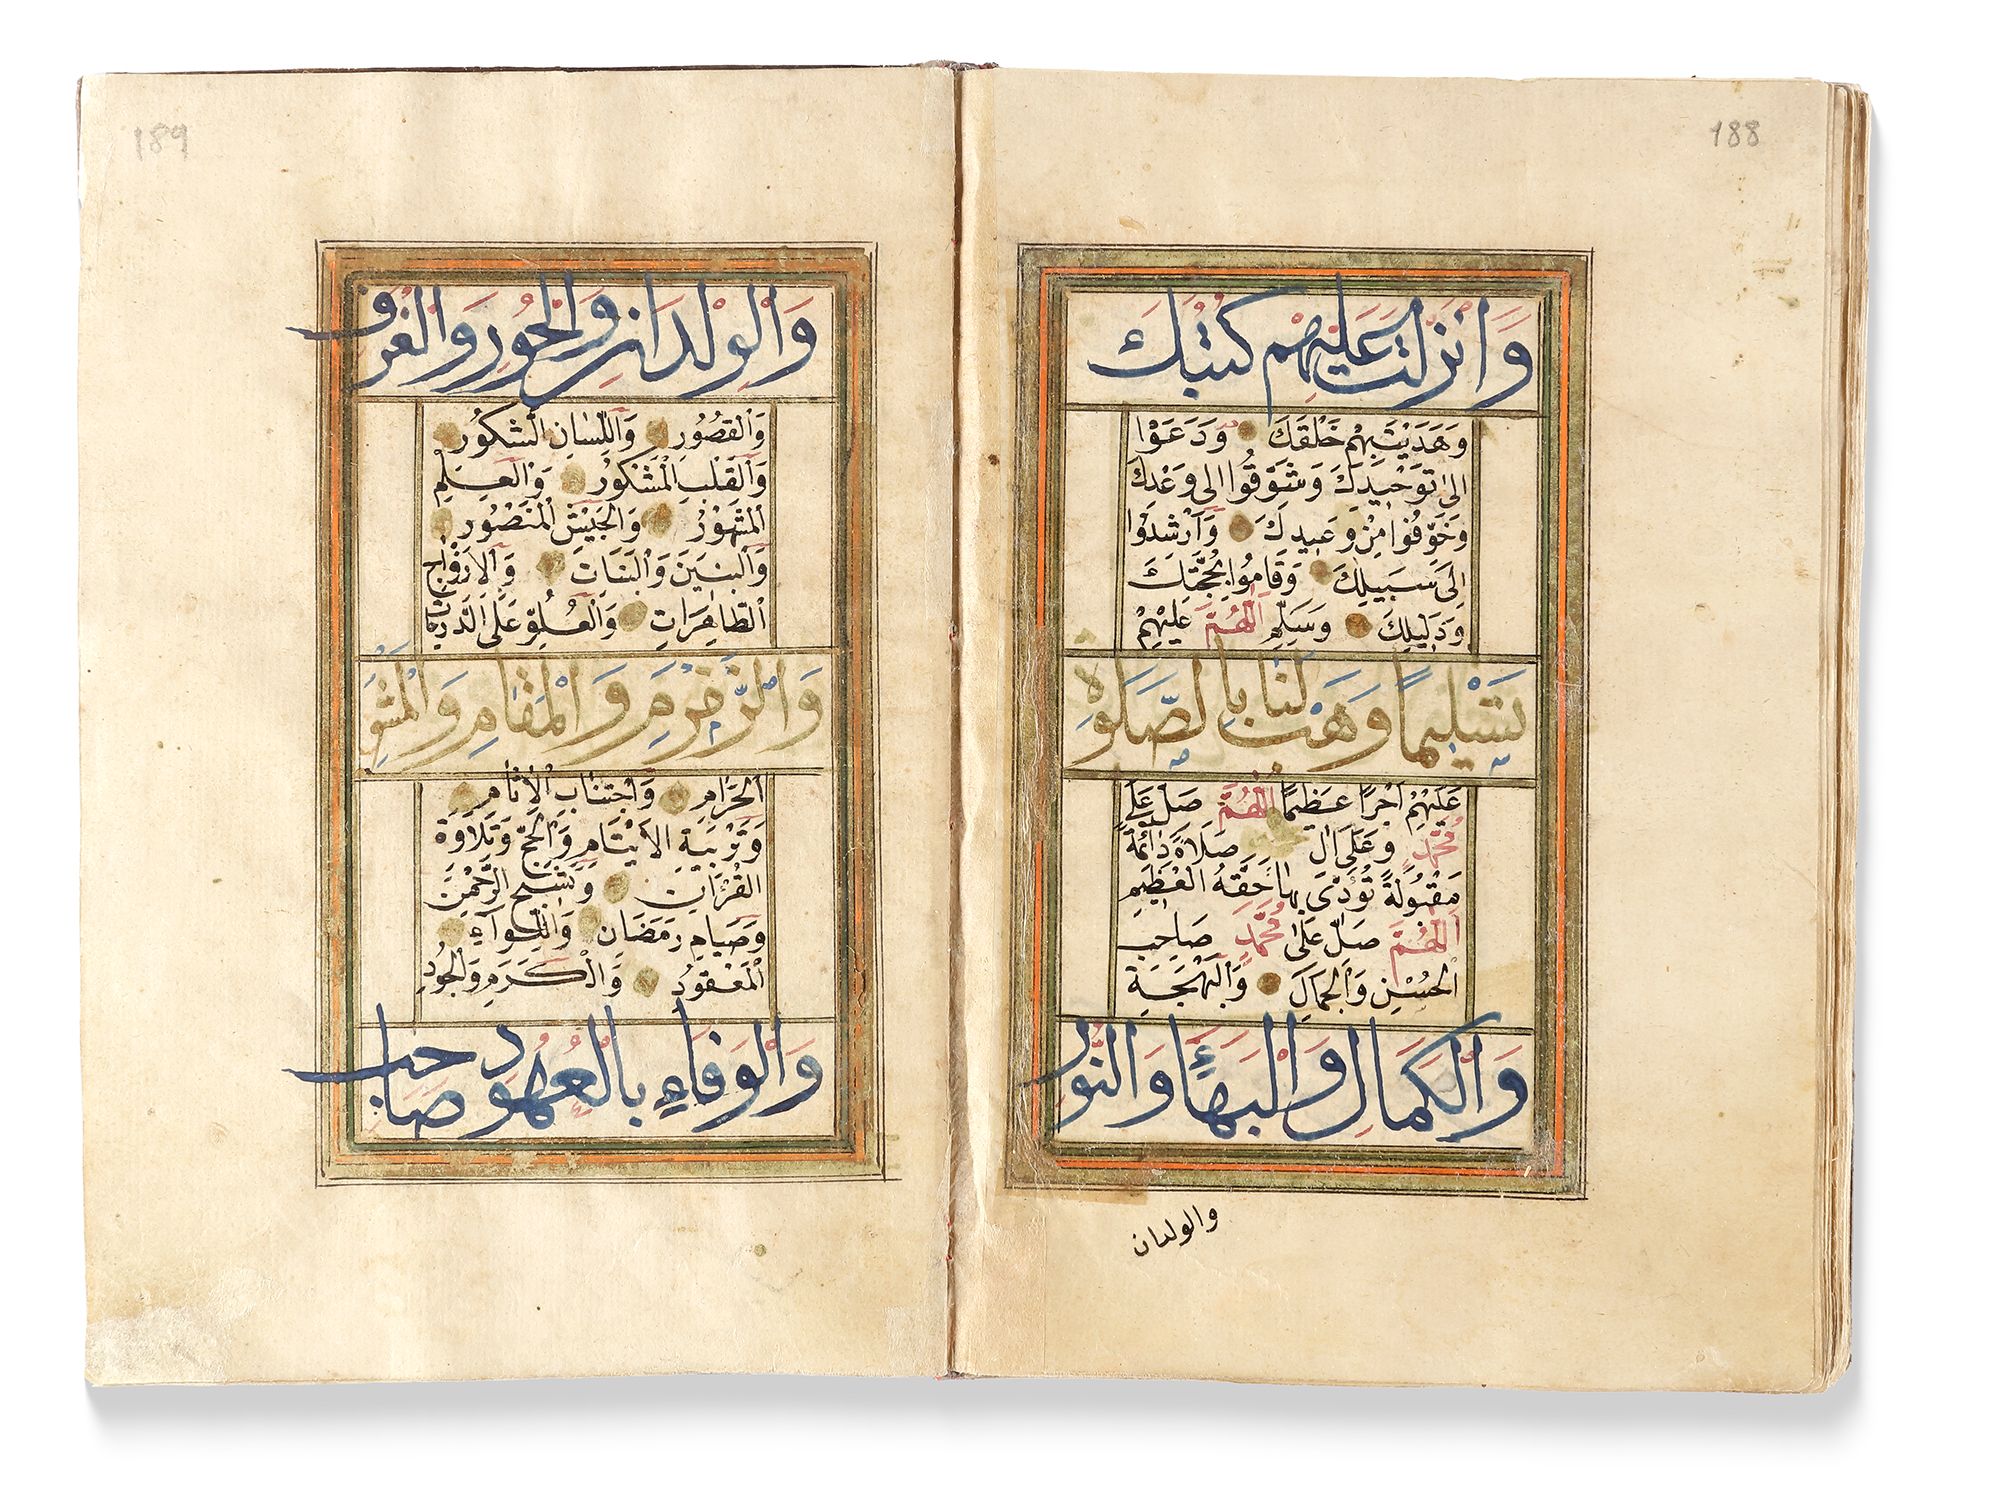 188
وَأَنْزَلْتَ عَلَيْهِمْ كُتُبَكَ
وَهَدَيْتَ بِهِمْ خَلْقَكَ وَدَعَوْا
إِلىٰ تَوْحِيدِكَ وَشَوَّقُوا إِلىٰ وَعْدِكَ
وَخَوَّفُوا مِنْ وَعِيدِكَ وَأَرْشَدُوا
إِلىٰ سَبِيلِكَ وَقَامُوا بِحُجَّتِكَ
وَدَلِيلِكَ وَسَلِّمِ اللّٰهُمَّ عَلَيْهِمْ
تَسْلِيمًا وَهَبْ لَنَا بِالصَّلَوٰةِ
عَلَيْهِمْ أَجْرًا عَظِيمًا اللّٰهُمَّ صَلِّ عَلىٰ
مُحَمَّدٍ وَعَلىٰ اٰلِ صَلَاةً دَائِمَةً
مَقْبُولَةً تُؤَدّىٰ بِهَا حَقَّهُ الْعَظِيمَ
اَللّٰهُمَّ صَلِّ عَلىٰ مُحَمَّدٍ صَاحِبِ
الْحُسْنِ وَالْجَمَالِ وَالْبَهْجَةِ
وَالْكَمَالِ وَالْبَهَاءِ وَالنُّورِ
والولدان
189
وَالْوِلْدَانِ وَالْحُورِ وَالْغُرَفِ
وَالْقُصُورِ وَاللِّسَانِ الشَّكُورِ
وَالْقَلْبِ الْمَشْكُورِ وَالْعَلَمِ
الْمَشْهُورِ وَالْجَيْشِ الْمَنْصُورِ
وَالْبَنِينَ وَالْبَنَاتِ وَالْأَزْوَاجِ
الطَّاهِرَاتِ وَالْعُلُوِّ عَلَى الدَّرَجَاتِ
وَالزَّمْزَمِ وَالْمَقَامِ وَالْمَشْعَرِ
الْحَرَامِ وَاجْتِنَابِ الْاٰثَامِ
وَتَرْبِيَةِ الْأَيْتَامِ وَالْحَجِّ وَتِلَاوَةِ
الْقُرْاٰنِ وَتَسْبِيحِ الرَّحْمٰنِ
وَصِيَامِ رَمَضَانَ وَاللِّوَاءِ
الْمَعْقُودِ وَالْكَرَمِ وَالْجُودِ
وَالْوَفَاءِ بِالْعُهُودِ صَاحِبِ